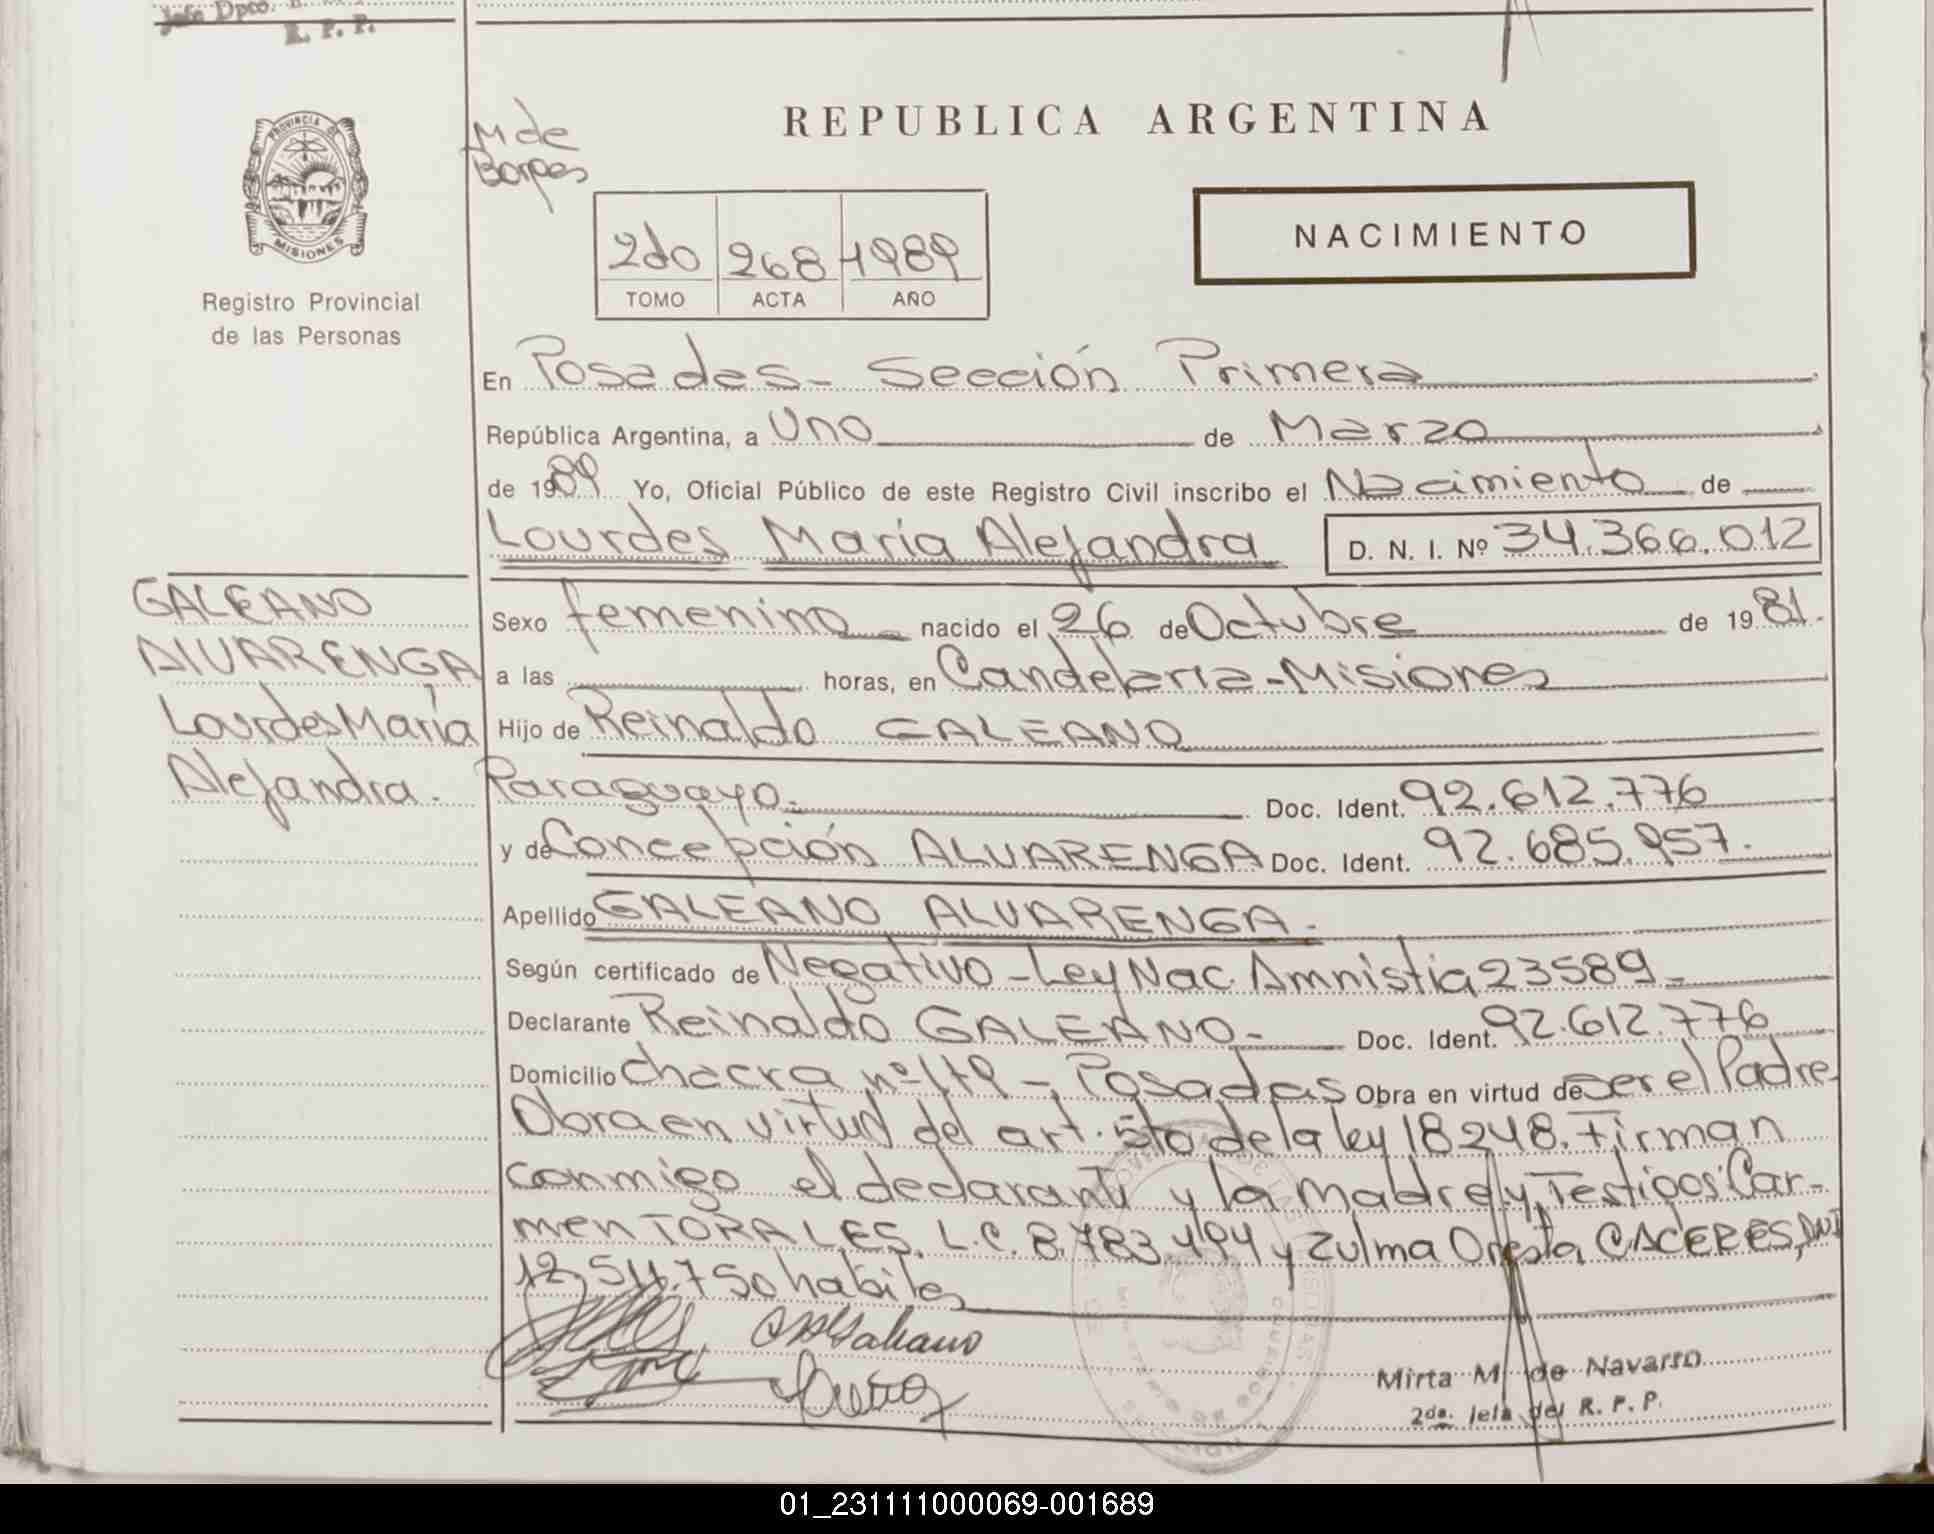 Jefe Dpto.
R. P. P.
PROVINCIA DE
MISIONES
Registro Provincial
de las Personas
M de
Borges
REPUBLICA ARGENTINA
NACIMIENTO
2do 268 1989
TOMO ACTA AÑO
En Posadas - Sección Primera
República Argentina, a Uno de Marzo
de 1989 Yo, Oficial Público de este Registro Civil inscribo el Nacimiento de
Lourdes María Alejandra D. N. I. Nº 34.366.012
GALEANO
ALVARENGA
Lourdes María
Alejandra.
Sexo femenino nacido el 26 de Octubre de 1981.
a las horas, en Candelaria - Misiones
Hijo de Reinaldo GALEANO
Paraguayo. Doc. Ident. 92.612.776
y de Concepción ALVARENGA Doc. Ident. 92.685.957.
Apellido GALEANO ALVARENGA.
Según certificado de Negativo - Ley Nac. Amnistia 23589
Declarante Reinaldo GALEANO - Doc. Ident. 92.612.776
Domicilio chacra nº 149 - Posadas Obra en virtud de ser el Padre
Obra en virtud del art. 5to de la ley 18248. Firman
conmigo el declarante y la madre y Testigos: Car-
men TORALES, L.C. 8.783.494 y Zulma Oresta CACERES, DNI
12.511.750 habiles
Galeano
Mirta M de Navarro
2da. Jefa del R. P. P.
01_231111000069-001689